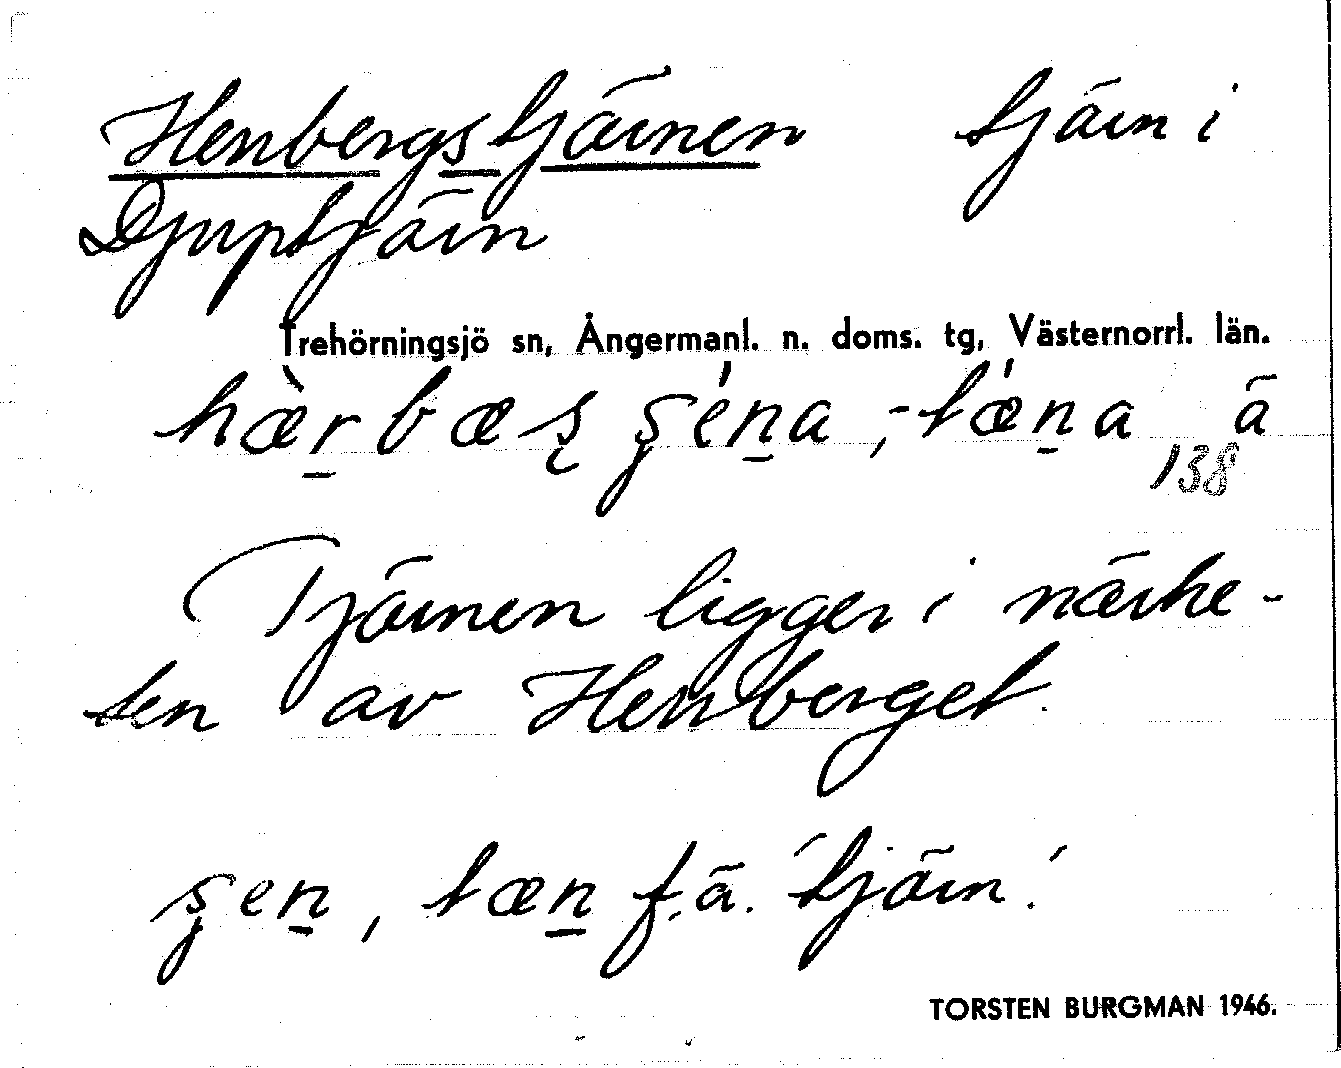 Henbergstjärnen tjärn i
Djuptjärn
Trehörningsjö sn, Ångermanl. n. doms. tg, Västernorrl. län.
ä
138
Tjärnen ligger i närhe-
ten av Henberget.
f. ä. 'tjärn'.
TORSTEN BURGMAN 1946.